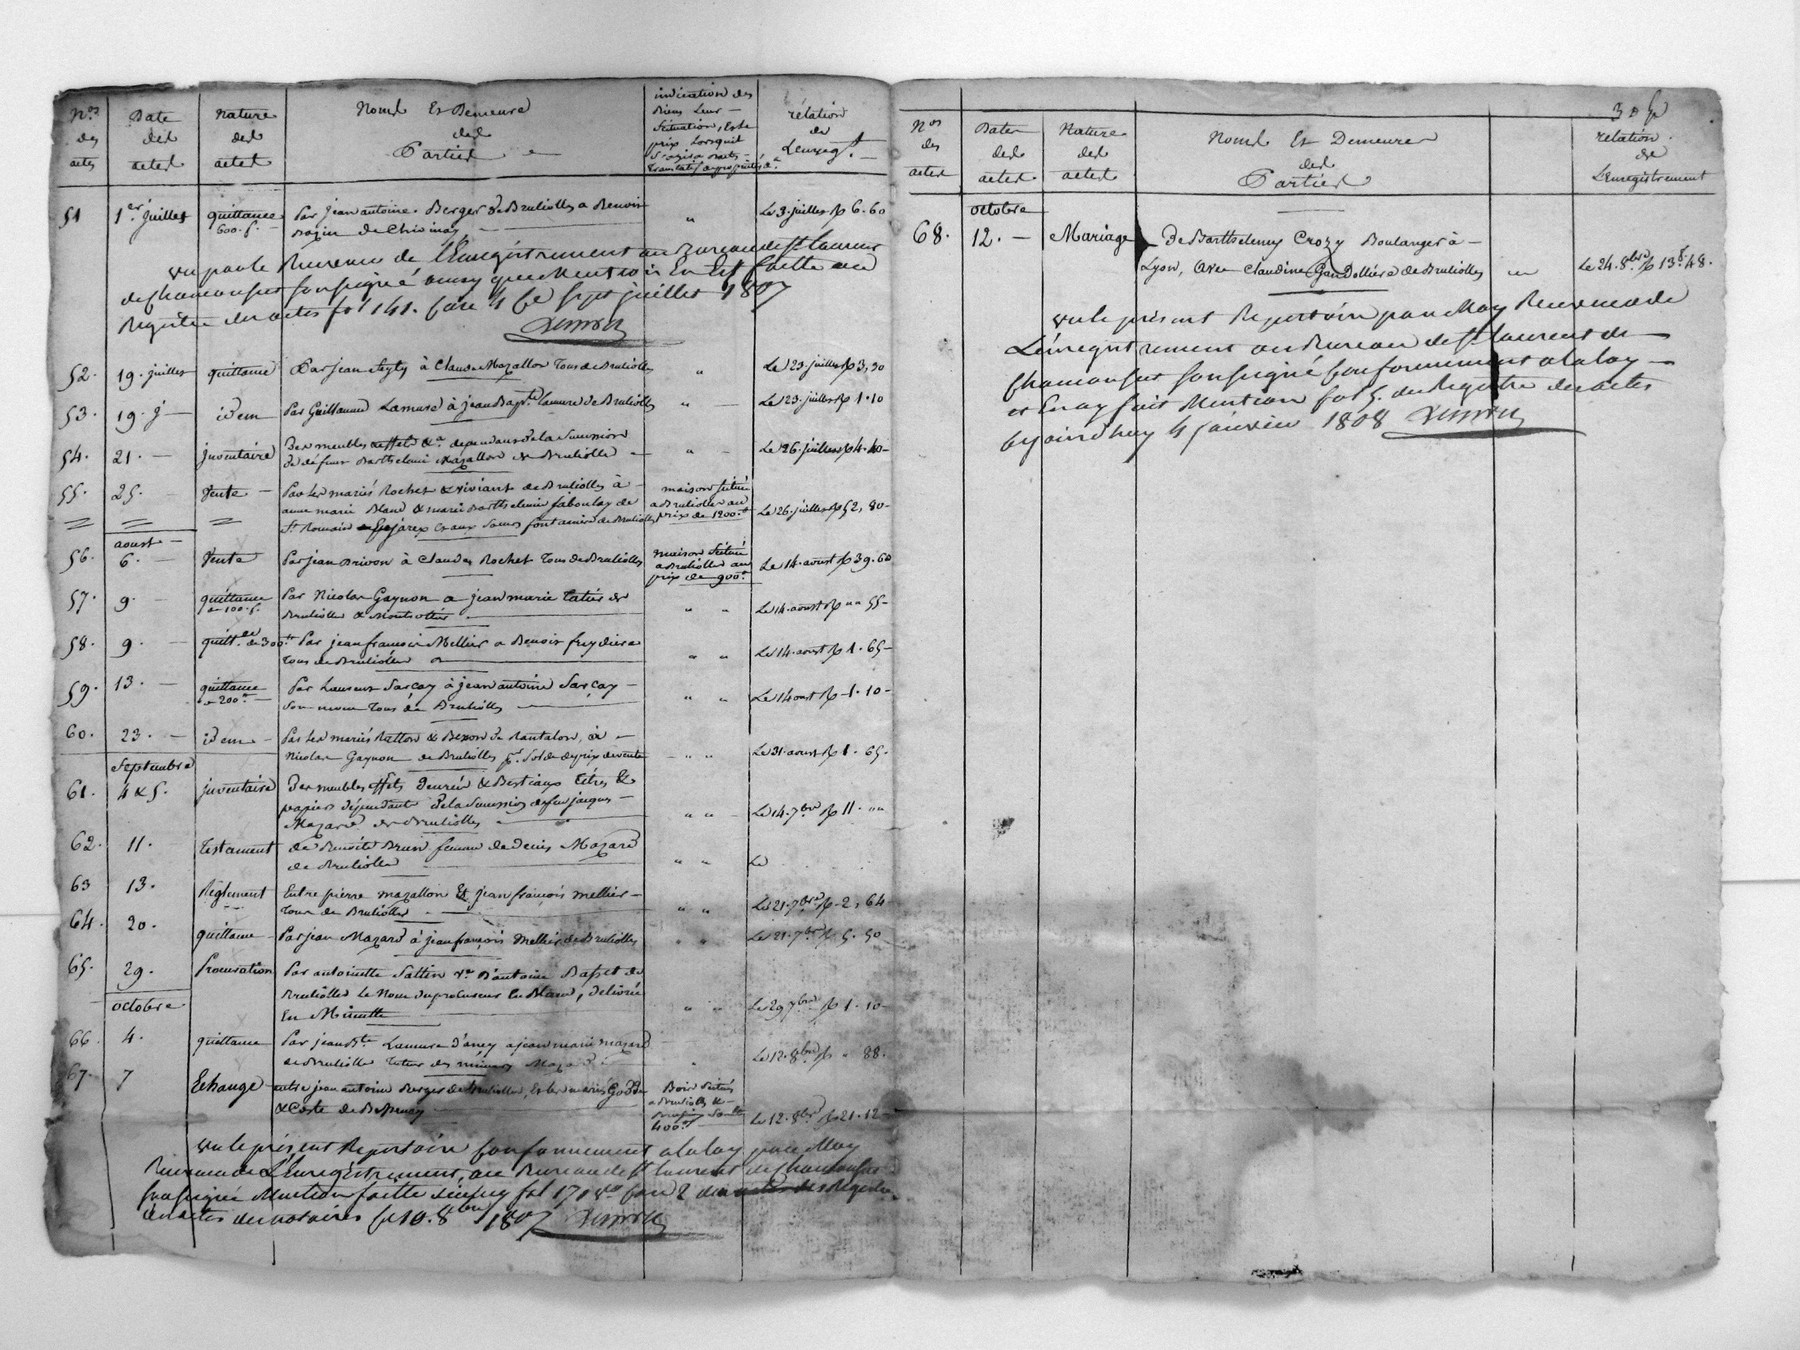 N.os des actes
Date des actes
Nature des actes
Noms Et Demeure des Parties
indication des Biens Leur Situation, Et le prix Lorsquil s'agira d'actes translatifs de propriétés &a.
rélation de L'enregt.
51 1er juillet quittance 600. f. Par jean antoine Berger de Brulioles a Benoit
de Chivinay " Le 3. juillet 6.60
vu par le Receveur de L'Enregistrement au Bureau de St Laurent
de chamousset soussigné ainsy que Mention En Est faitte au
Registre des actes fol 141. Case 4 Ce Sept juillet 1807
52. 19. juillet quittance Par jean à Claude Mazallon Tous de Brulioles " Le 23. juillet 3,30
53. 19. j idem Par Guillaume Lamure à jean Bapte. Lamure de Brulioles " Le 23. juillet 1.10
54. 21. inventaire Des meubles effets &a. dependans de la Succession
de défunt Barthelemi Mazallon de Brulioles " Le 26. juillet 4.40
55. 25. Vente Par Les mariés Rochet & Viviant de Brulioles à
anne marie Blanc & marie Barthelemie faboulay de
St. Romain de Brulioles
maison située a Brulioles au prix de 1200.
Le 26. juillet 52,80
aoust
56. 6. Vente Par jean Brivon à Claude Rochet Tous de Brulioles
maison située a Brulioles au prix de 900.
Le 14. aoust 39.60
57. 9. quittance de 100. f. Par Nicolas Gaynon a jean marie de
Brulioles & " " Le 14. aoust " 55
58. 9. quitt.ce de 300. Par jean francois Mellier a Benoit freydiere
tous de Brulioles " " Le 14. aoust 1.65
59. 13. quittance de 200. Par Laurent Sarcay à jean antoine Sarcay
Son neveu Tous de Brulioles " " Le 14 aout 1.10
60. 23. idem Par Les mariés & de Rantalon, à
Nicolas Gaynon de Brulioles pr. Solde de prix de vente " " Le 31. aoust 1.65.
Septembre
61. 4 & 5. inventaire Des meubles effets Denrées & Bestiaux Titres &
papiers dépendant de la Succession de feu jacques
Mazard de Brulioles " " Le 14. 7bre 11. ""
62. 11. Testament de Benoite Brun femme de Denis Mazard
de Brulioles " " Le
63 13. Réglement Entre pierre mazallon Et jean françois mellier
tous de Brulioles " " Le 21. 7bre 2,64
64. 20. quittance Par jean Mazard à jean françois Mellier de Brulioles " " Le 21. 7bre 5.50
65. 29. Procuration Par antoinette ve. D'antoine Basset de
Brulioles Le Nom du procureur En Blanc, delivrée
En Minutte " " Le 29 7bre 1.10
octobre
66. 4. quittance Par jean Bte. Lamure D'ancy a jean marie mazard
de Brulioles tuteur des mineurs Mazard " Le 12. 8bre " 88.
67. 7 Echange entre jean antoine Berger de Brulioles, Et les mariés
& Coste de Bessenay
Bois situés a Brulioles & 400.
Le 12. 8bre 21.12
vu le présent Repertoire Conformement a la loy par Moy
Receveur de L'Enregistrement, au Bureau de St Laurent de chamousset
soussigné Mention faitte fol 170 vo Case 2 du Registre
des actes des notaires Ce 10. 8bre 1807
N.os des actes
Date des actes
Nature des actes
Noms Et Demeure des Parties
rélation de L'Enregistrement
octobre
68. 12. Mariage De Barthelemy Crozy Boulanger à
Lyon, avec Claudine Gaudollière de Brulioles Le 24. 8bre 13.48.
vu le présent Repertoire par Moy Receveur de
L'énregistrement au Bureau de St Laurent de
chamousset soussigné Conformement a la loy
et En ay fait Mention fol 5. du Registre des actes
Cejourd'huy 4 janvier 1808